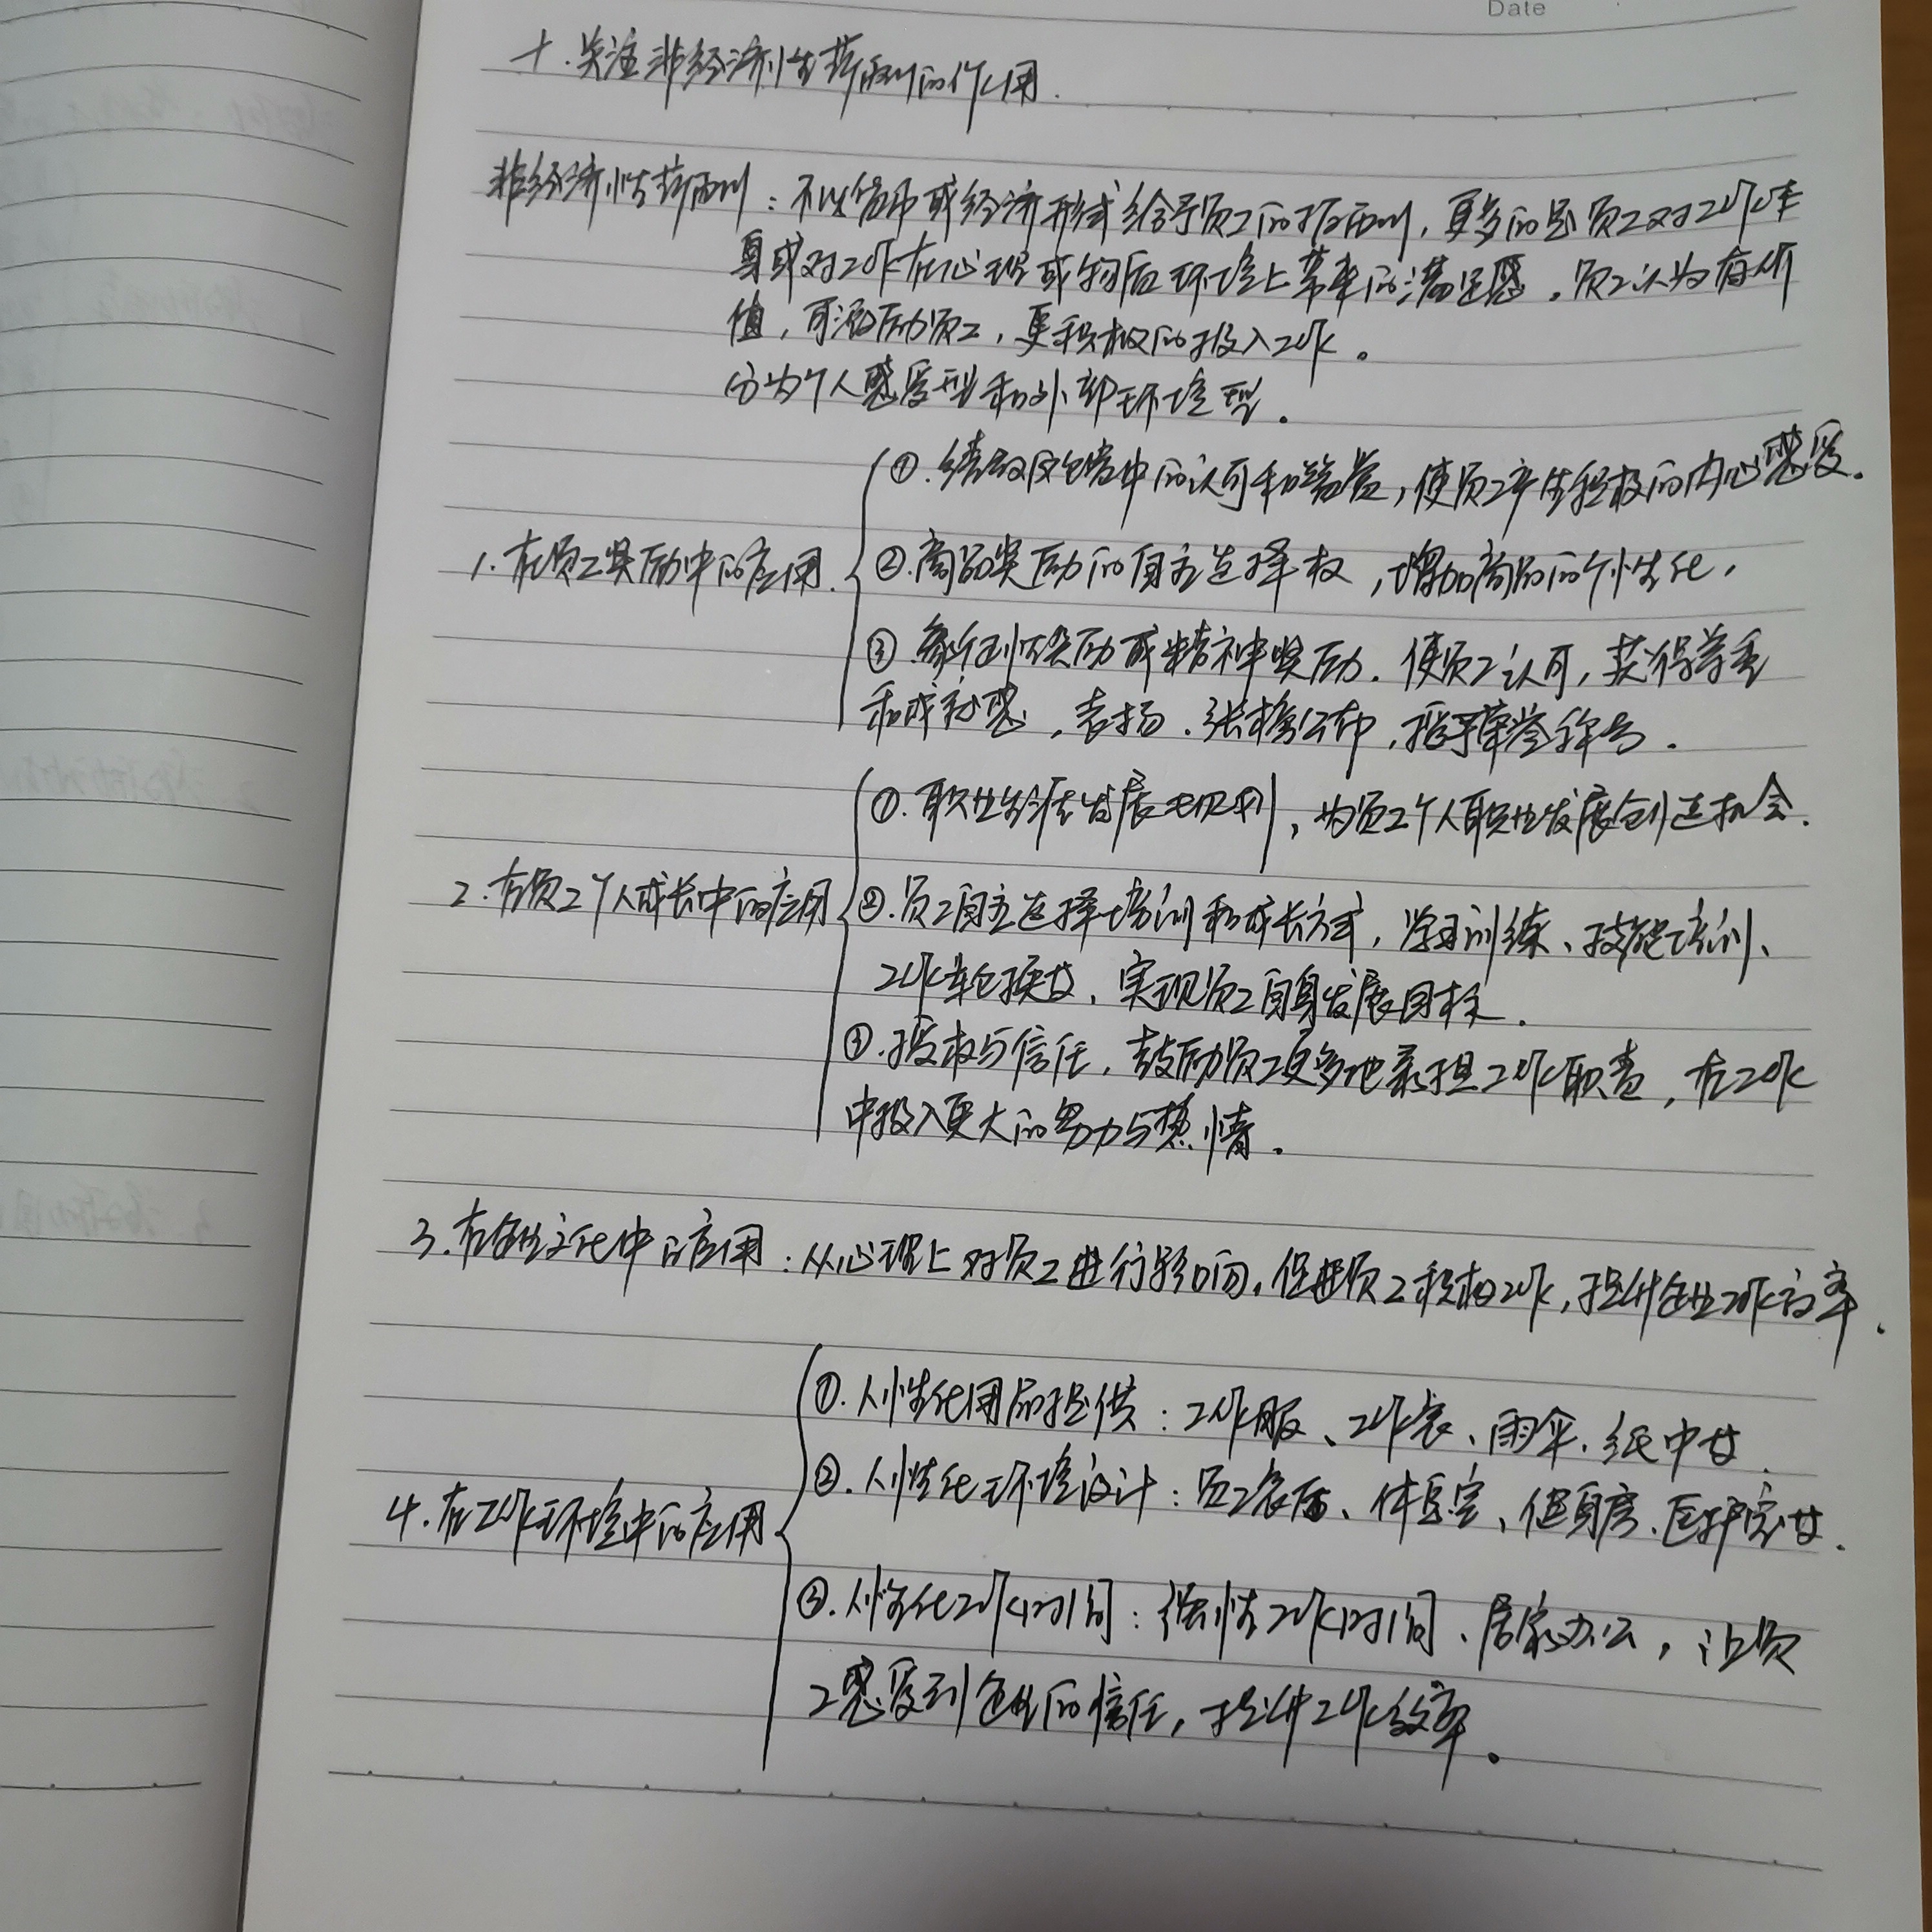 Date
十.关注非经济性薪酬的作用.
非经济性薪酬：不以货币或经济形式给予员工的报酬，更多的是员工对工作本
身或对工作在心理或物质环境上带来的满足感。员工认为有价
值，可激励员工，更积极的投入工作。
分为个人感受型和外部环境型。
①.绩效反馈中的认可和赞赏，使员工产生积极的内心感受.
1.在员工奖励中的应用.
②.商品奖励的自主选择权，增加商品的个性化，
③.象征性奖励或精神奖励.使员工认可，获得尊重
和成就感，表扬.张榜公布，授予荣誉称号.
①.职业生涯发展规划，为员工个人职业发展创造机会.
2.在员工个人成长中的应用
②.员工自主选择培训和成长方式，学习训练、技能培训、
工作轮换等，实现员工自身发展目标.
③.授权与信任，鼓励员工更多地承担工作职责，在工作
中投入更大的努力与热情。
3.在企业文化中的应用：从心理上对员工进行影响，促进员工积极工作，提升企业工作效率.
①.人性化用品提供：工作服、工作表、雨伞.纸巾等.
②.人性化环境设计：员工食堂、休息室、健身房、医护室等.
4.在工作环境中的应用
③.人性化工作时间：弹性工作时间、居家办公，让员
工感受到企业的信任，提升工作效率。